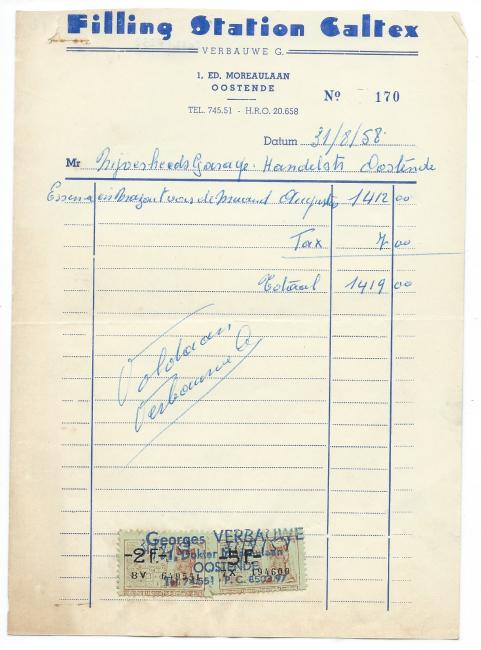 Filling Station Caltex
VERBAUWE G.
1, ED. MOREAULAAN
OOSTENDE
Nº 170
TEL. 745.51 - H.R.O. 20.658
Datum 31/8/58
Mr Nijverheeds Garage. Handelstr Oostende
Essence en Mazout voor de maand Augustus 1412 00
Tax 7 00
Totaal 1419 00
Voldaan
Verbauwe G
Georges VERBAUWE
-2F- -5F-
1. Dokter Moreaulaan
OOSTENDE
BV 194600
Tel. 74551 P.C. 8503.97